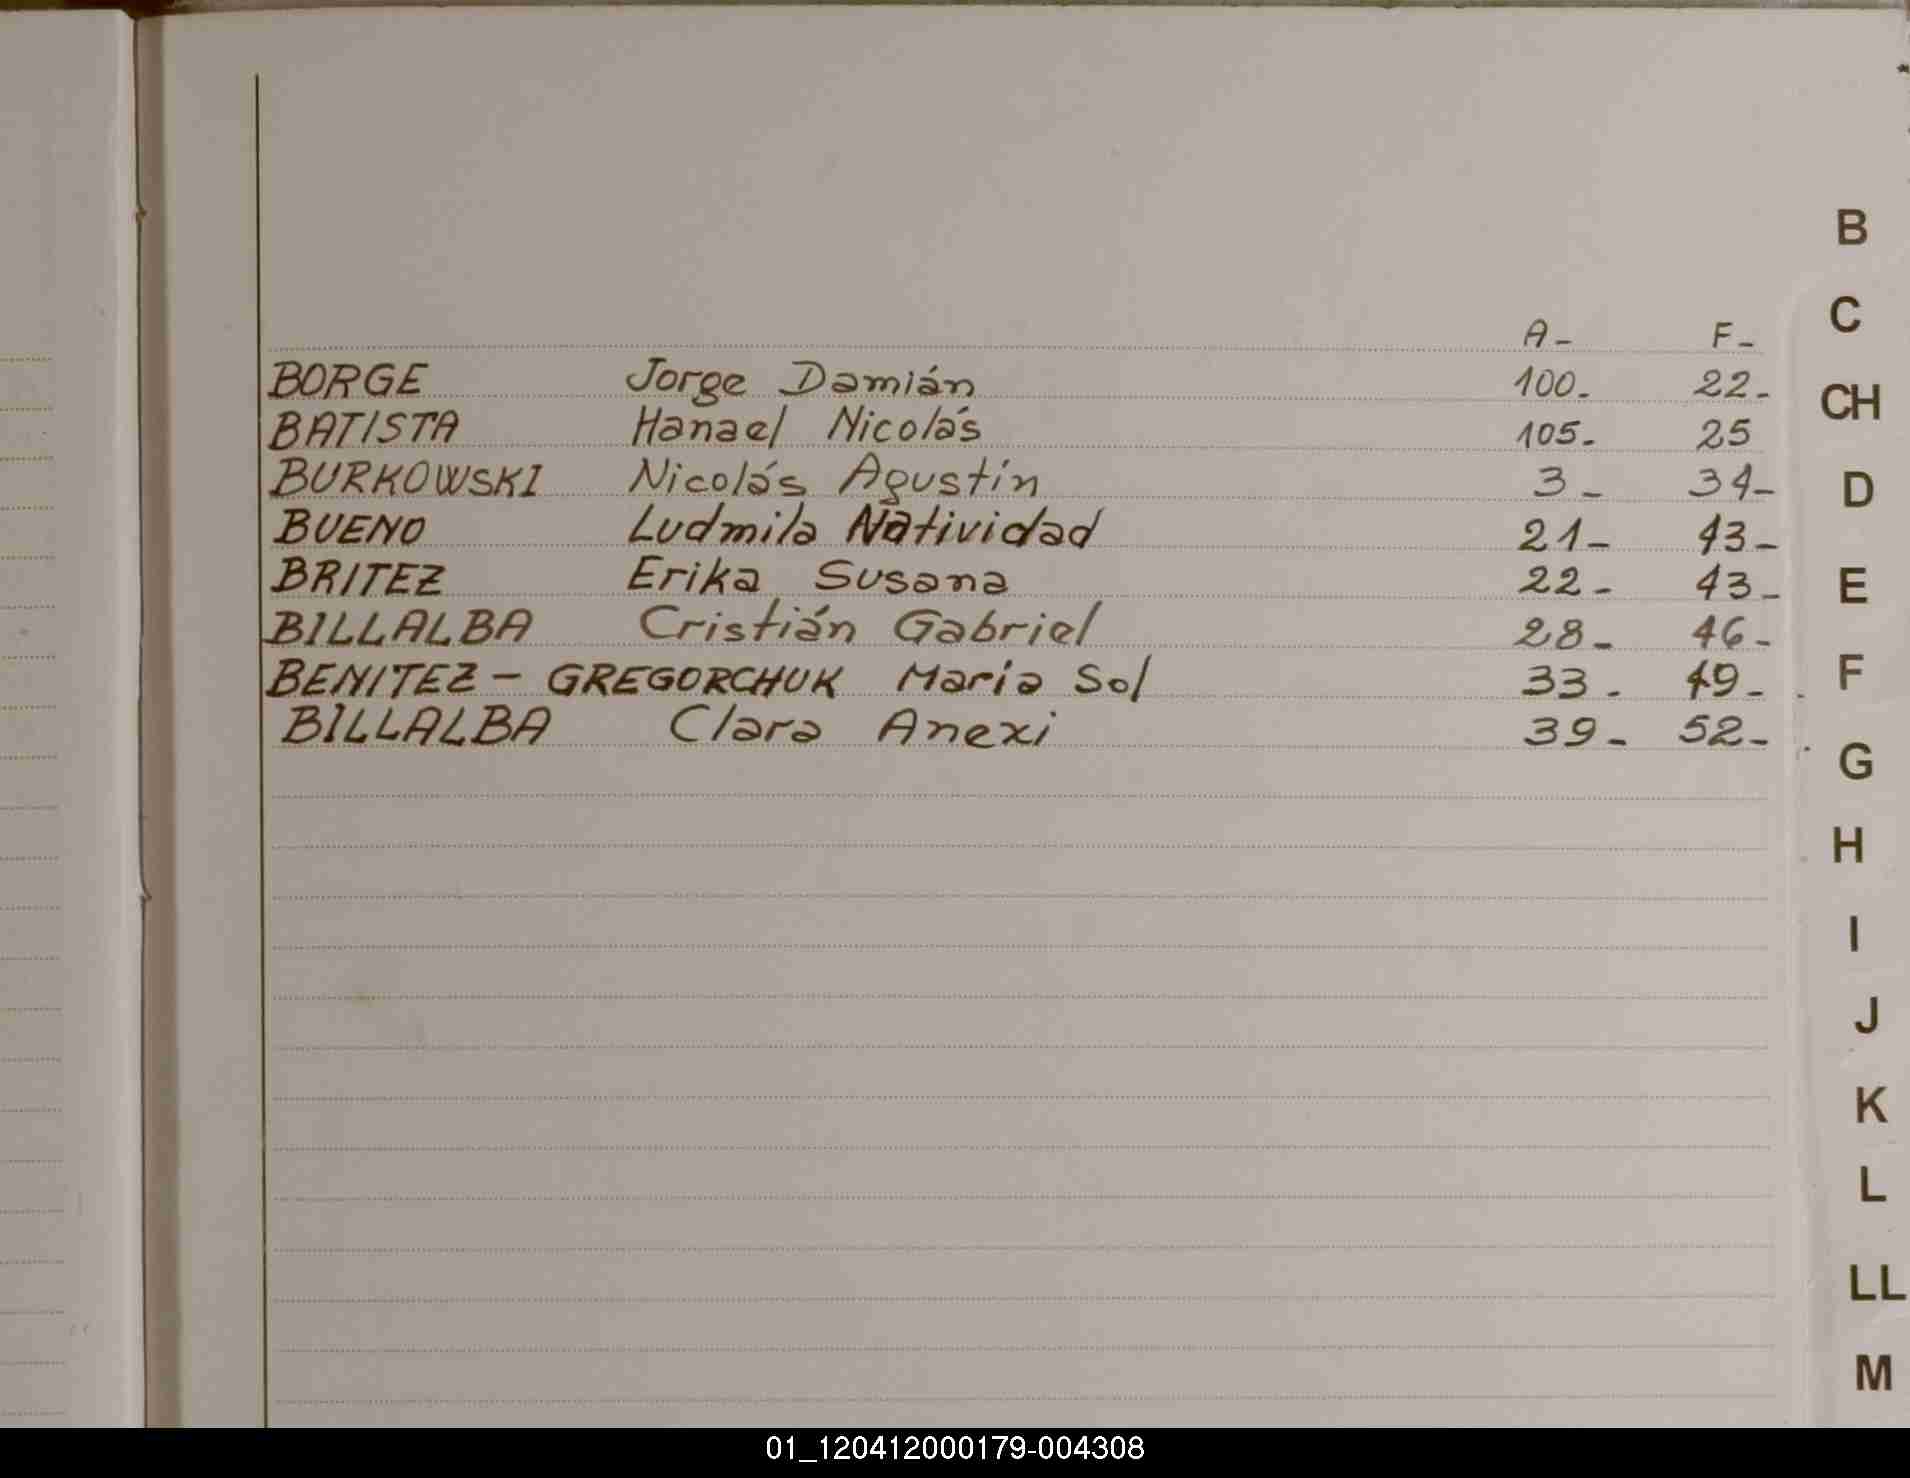 A- F-
BORGE Jorge Damián 100. 22-
BATISTA Hanael Nicolás 105. 25
BURKOWSKI Nicolás Agustín 3- 34-
BUENO Ludmila Natividad 21- 43-
BRITEZ Erika Susana 22- 43-
BILLALBA Cristián Gabriel 28- 46-
BENITEZ - GREGORCHUK Maria Sol 33. 49-
BILLALBA Clara Anexi 39- 52-
B
C
CH
D
E
F
G
H
I
J
K
L
LL
M
01_120412000179-004308